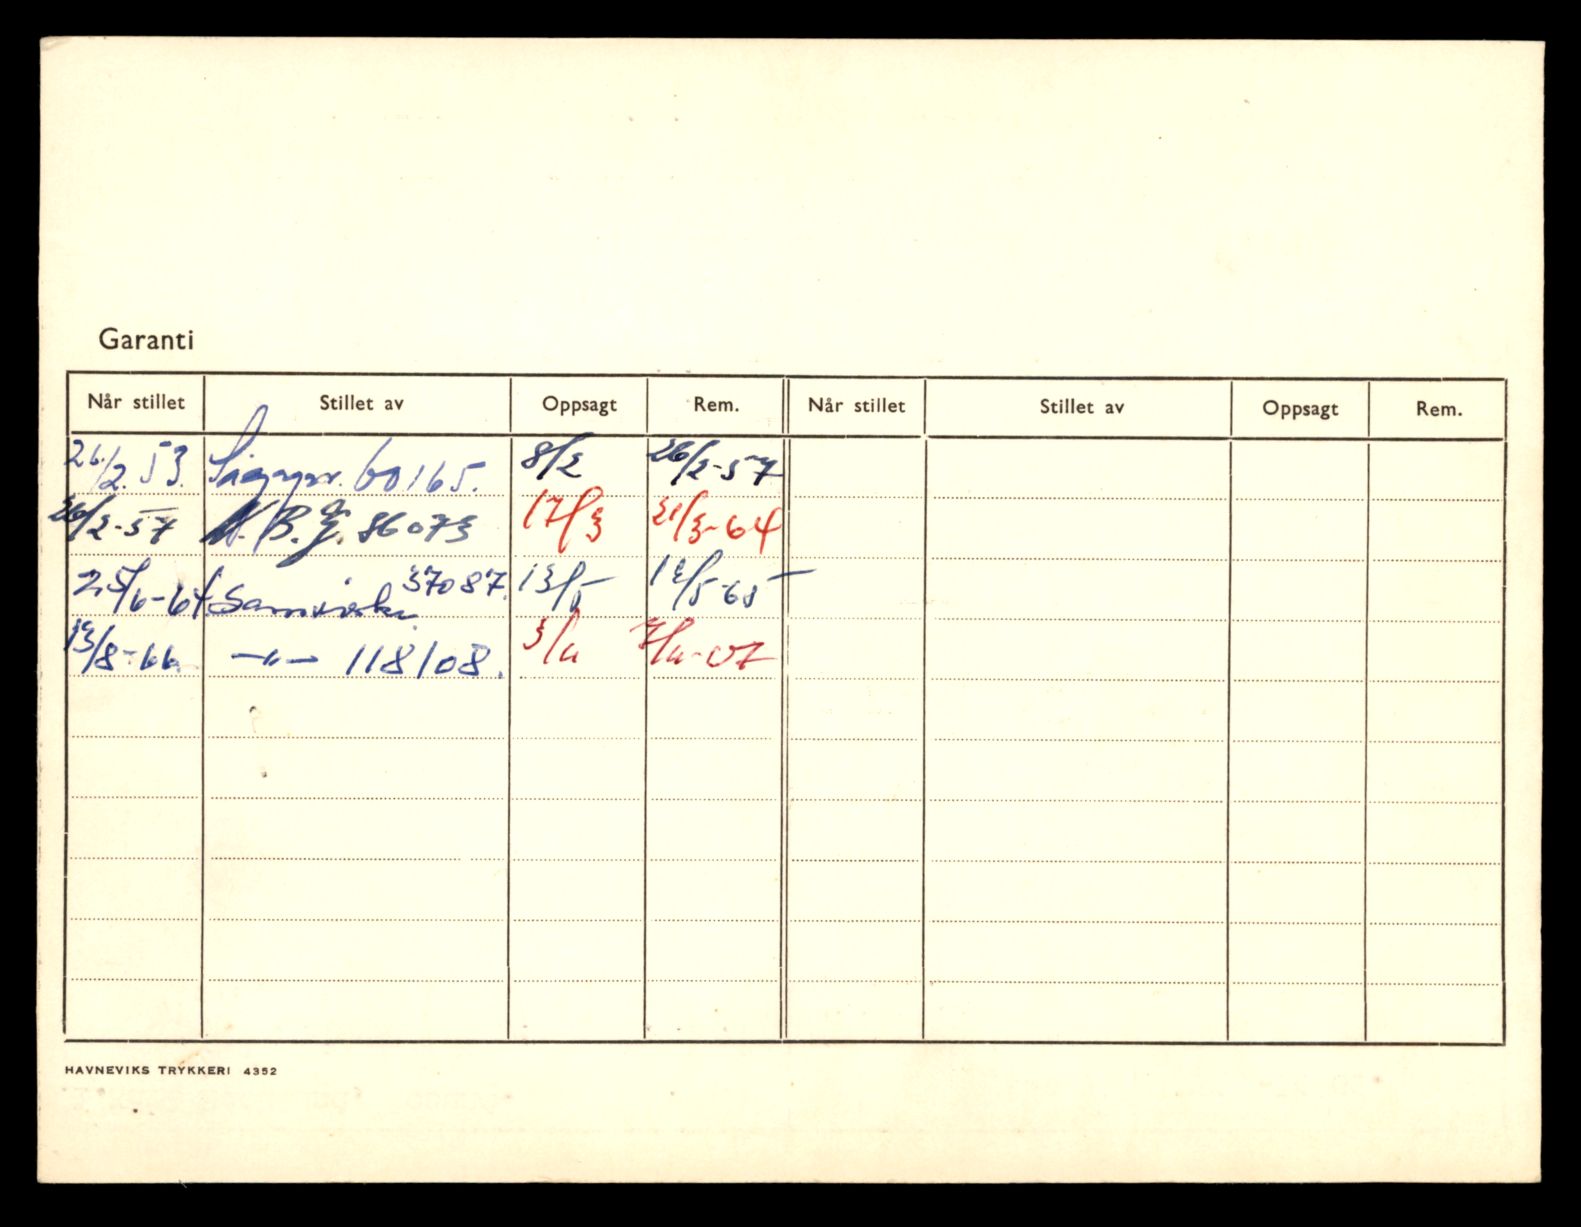 Garanti
Når stillet Stillet av Oppsagt Rem. Når stillet Stillet av Oppsagt Rem.
26/2. 53. 60165. 8/2 26/2-57
26/2-57 N.B.G. 86073 17/3 21/3-64
25/6-64. Samvirke 37087. 13/5 12/5-65
13/8-66 -"- 118108. 3/11
HAVNEVIKS TRYKKERI 4352